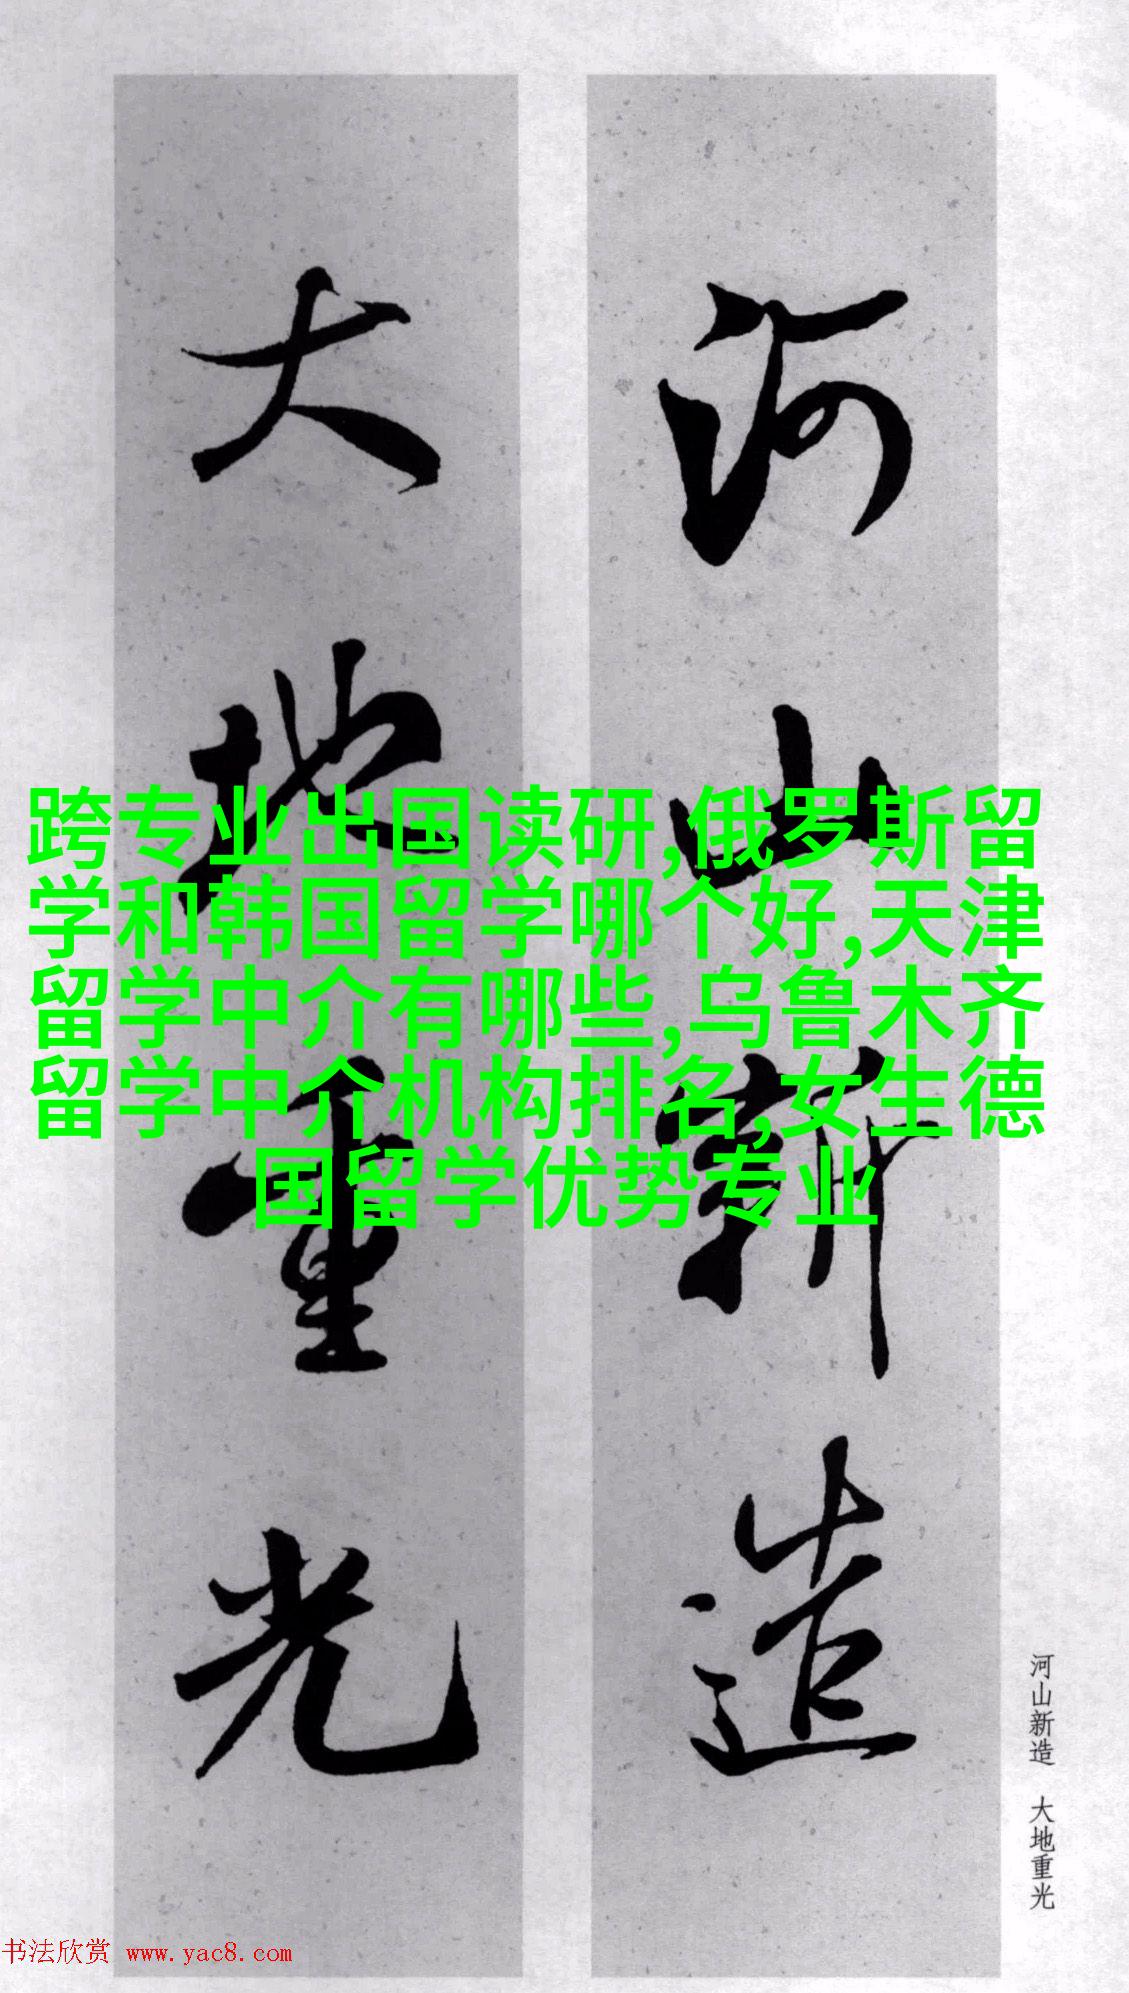 河山新造
大地重光
跨专业出国读研,俄罗斯留
学和韩国留学哪个好,天津
留学中介有哪些,乌鲁木齐
留学中介机构排名,女生德
国留学优势专业
河山新造 大地重光
书法欣赏 www.yac8.com